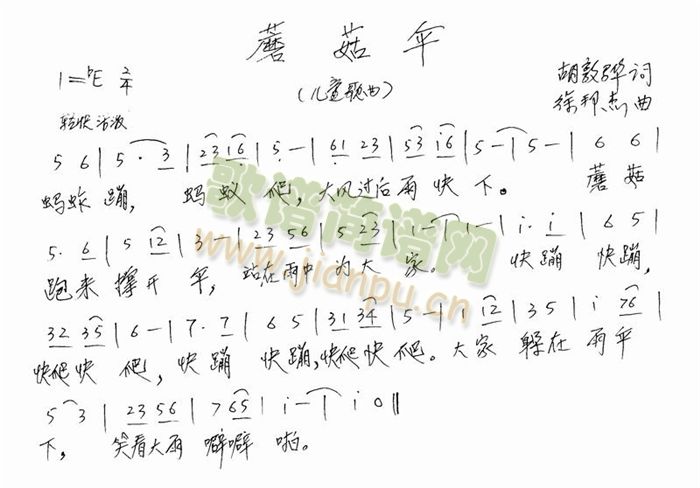 蘑菇伞
1=bE 2/4
(儿童歌曲)
胡敦骅词
徐邦杰曲
轻快 活泼
5 6 | 5 · 3 | 23 i6 | 5 - | 61 23 | 53 i6 | 5 - | 5 - | 6 6
蚂蚱蹦, 蚂蚁爬,大风过后雨快下。 蘑菇
5· 6 | 5 i2 | 3 - | 23 56 | 5 23 | i - | i - | i· i | 6 5 |
跑来撑开伞, 站在雨中为大家。 快蹦快蹦,
32 35 | 6 - | 7· 7 | 6 5 | 31 34 | 5 - | 1 i2 | 35 | i 76 |
快爬快爬, 快蹦快蹦,快爬快爬。大家躲在雨伞
5 3 | 23 56 | 7 65 | i - | i 0 ||
下, 笑看大雨噼噼啪。
歌谱简谱网
www.jianpu.cn